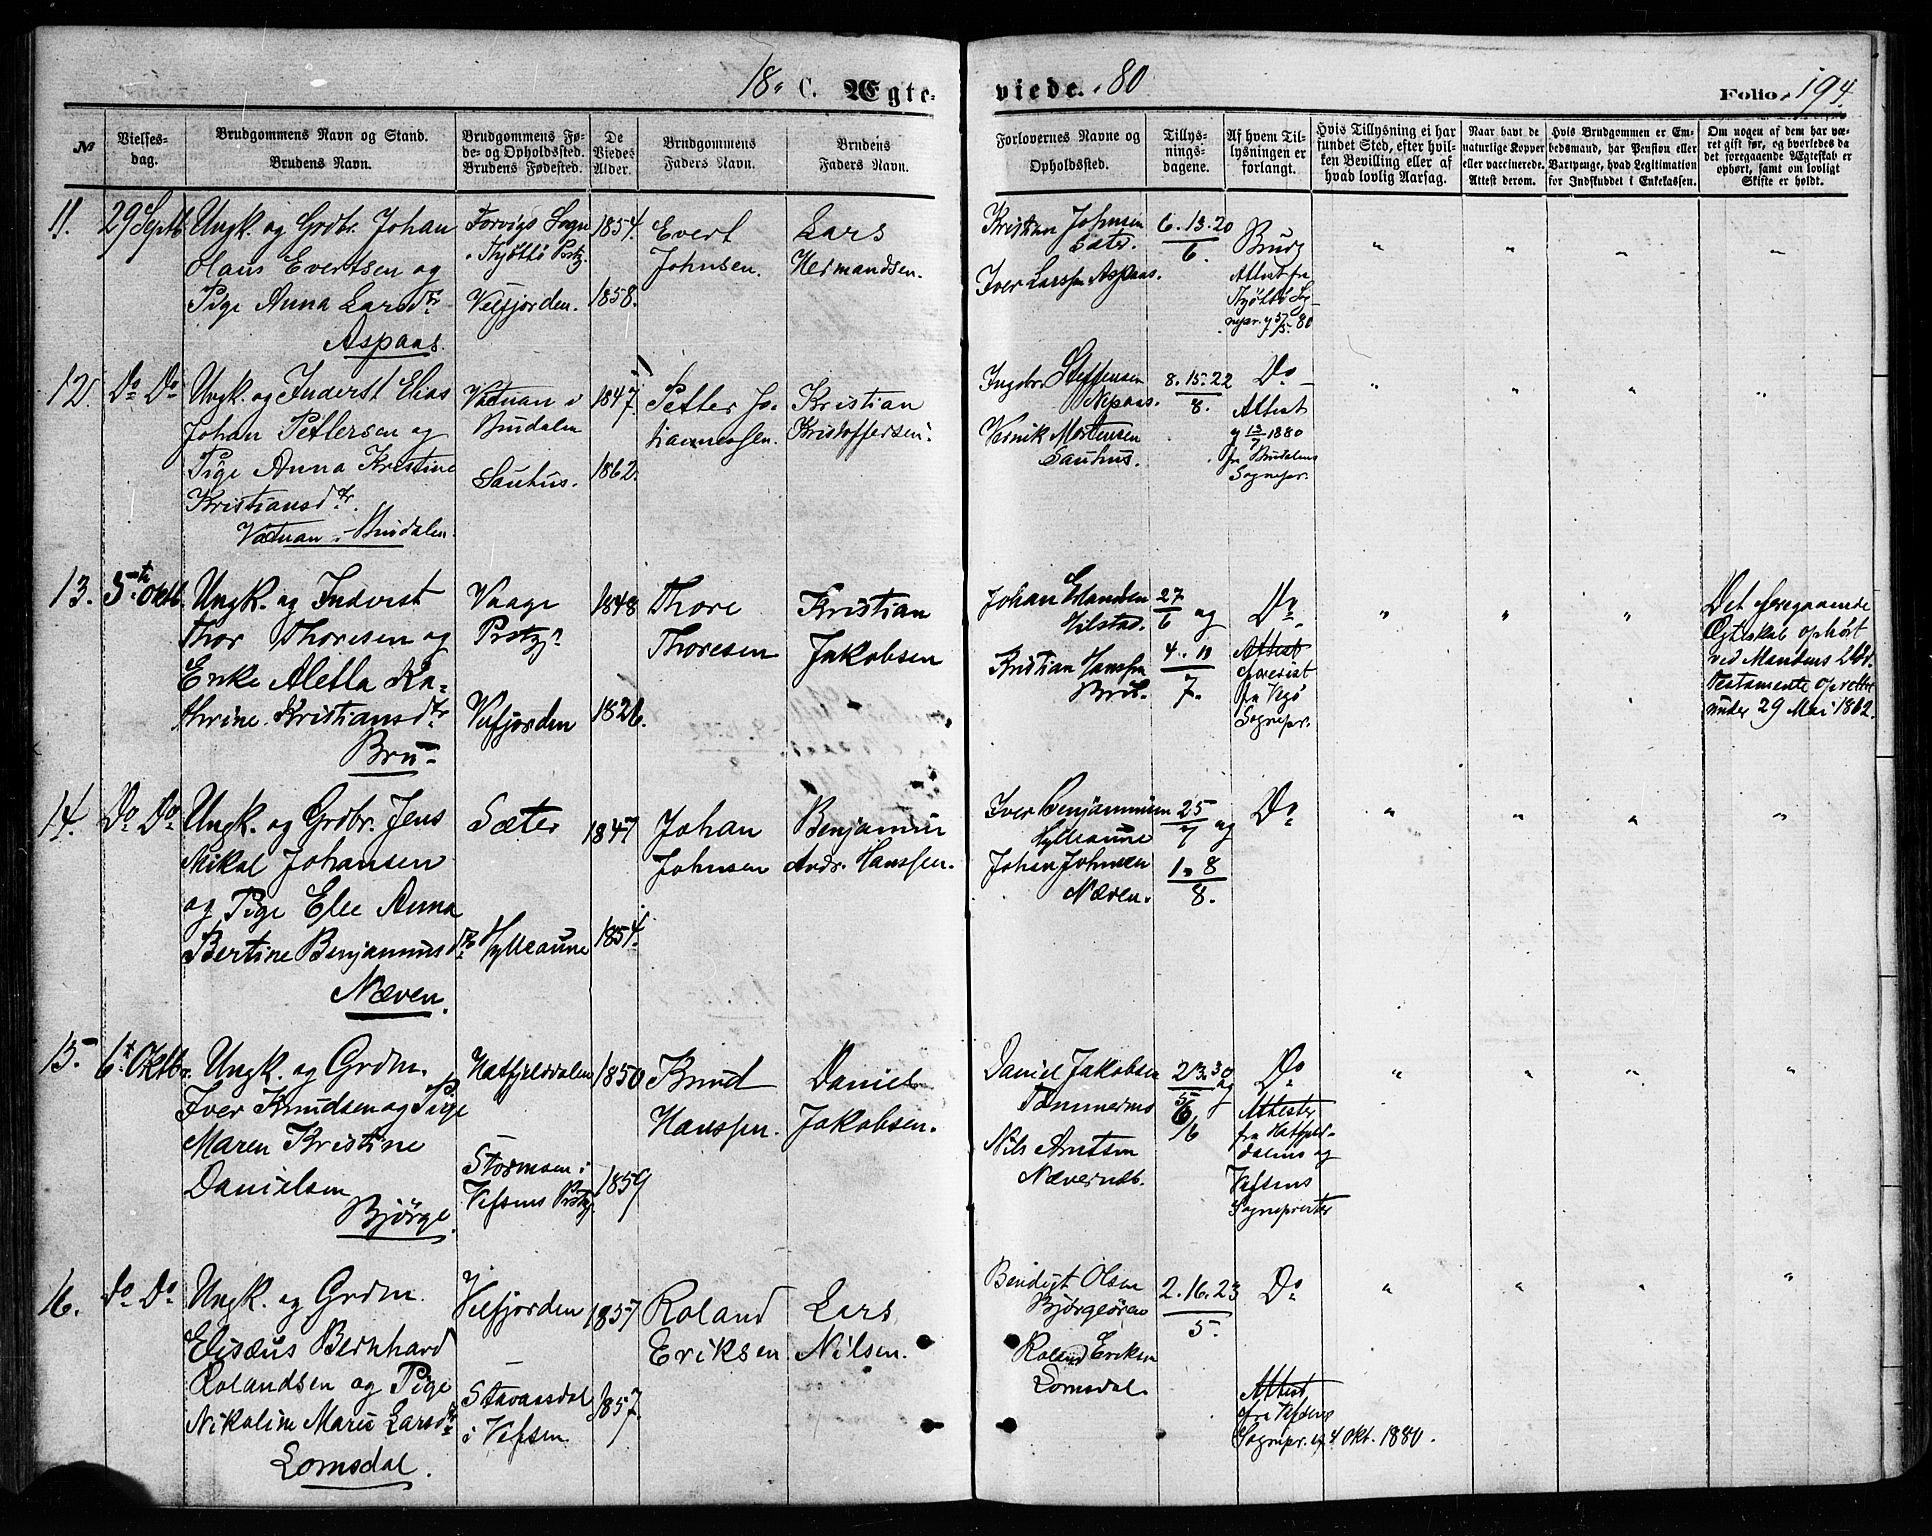 18 C. Ægteviede. 80
Folio. 194.
№
Vielsesdag.
Brudgommens Navn og Stand.
Brudens Navn.
Brudgommens Føde- og Opholdssted.
Brudens Fødested.
De Viedes Alder.
Brudgommens Faders Navn.
Brudens Faders Navn.
Forlovernes Navne og Opholdssted.
Tillysningsdagene.
Af hvem Tillysningen er forlangt.
Hvis Tillysning ei har fundet Sted, efter hvilken Bevilling eller af hvad lovlig Aarsag.
Naar havt de naturlige Kopper eller vaccinerede. Attest derom.
Hvis Brudgommen er Embedsmand, har Pension eller Vartpenge, hvad Legitimation for Indskuddet i Enkekassen.
Om nogen af dem har været gift før, og hvorledes da det foregaaende Ægteskab er ophørt, samt om lovligt Skifte er holdt.
11. 29 Septb.
Ungk. og Grdbr. Johan
Olaus Evertsen og
Pige Anna Larsdtr
Aspaas
Forvigs Sogn
i Thjöttö Prstgj.
Velfjorden.
1854.
1858.
Evert
Johnsen.
Lars
Hermandsen.
Kristian Johnsen
Sæter.
Iver Larssen Aspaas.
6. 13. 20
6.
Brudg
Attest fra
Thjöttö Sognepr.
12. Do Do
Ungk. og Inderst Elias
Johan Pettersen og
Pige Anna Kristine
Kristiansdtr.
Vatuan i Bindalen.
Vatuan i
Bindalen
Sauhus.
1847.
1862.
Petter Johannessen.
Kristian
Kristoffersen.
Ingebr. Steffensen
Nepaas.
Vernik Mortensen
Sauhus.
8. 15. 22
8.
Do
Attest
13/7 1880
fra Bindalens
Sognepr.
13. 5te Oktb.
Ungk. og Inderst
Thor Thoresen og
Enke Aletta Kathrine
Kristiansdtr
Bru
Vaage
Prstgj.
Velfjorden
1848
1826.
Thore
Thoresen
Kristian
Jakobsen
Johan Erlandsen
Hilstad.
Kristian Hanssen
Bru.
27
6 og
4. 11
7.
Do.
Attest
fra Vegö
Sognepr.
Det foregaaende
Ægteskab ophørt
ved Mandens Död.
Testamente oprettet
under 29 Mai 1862.
14. Do Do
Ungk. og Grdbr. Jens
Mikal Johansen
og Pige Else Anna
Bertine Benjaminsdtr
Næven.
Sæter
Hylleaune
1847
1854.
Johan
Johnsen
Benjamin
Andr. Hanssen.
Iver Benjaminsen
Hylleaune
Johan Johnsen
Næven.
25
7 og
1. 8
8.
Do
15. 6te Oktbr.
Ungk. og Grdm.
Iver Knudsen og Pige
Maren Kristine
Danielsen
Bjørge.
Hatfjelddalen
i
Vefsens Prstgj.
1850
1859
Knud
Hanssen.
Daniel
Jakobsen.
Daniel Jakobsen
Tømmermo
Nils Arntsen
23. 30
5 og
6
Do
Attester
fra Hatfjelddalens og
Vefsens
Sogneprester
16. Do Do
Ungk. og Grdm.
Elisæus Bernhard
Rolandsen og Pige
Nikoline Marie Larsdtr
Lomsdal.
Velfjorden
Stavassdal
i Vefsen
1857
1857.
Roland
Eriksen
Lars
Nilsen.
Bendigt Olsen
Bjørgeøren
Roland Eriksen
Lomsdal.
2. 16. 23
5.
Do
Attest
fra Vefsens
Sognepr. af 4 Okt. 1880.